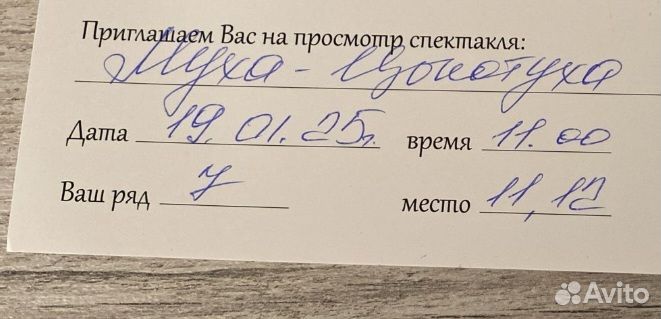 Приглашаем Вас на просмотр спектакля:
Муха - Цокотуха
Дата 19.01.25г. время 11.00
Ваш ряд 7 место 11,12
Avito